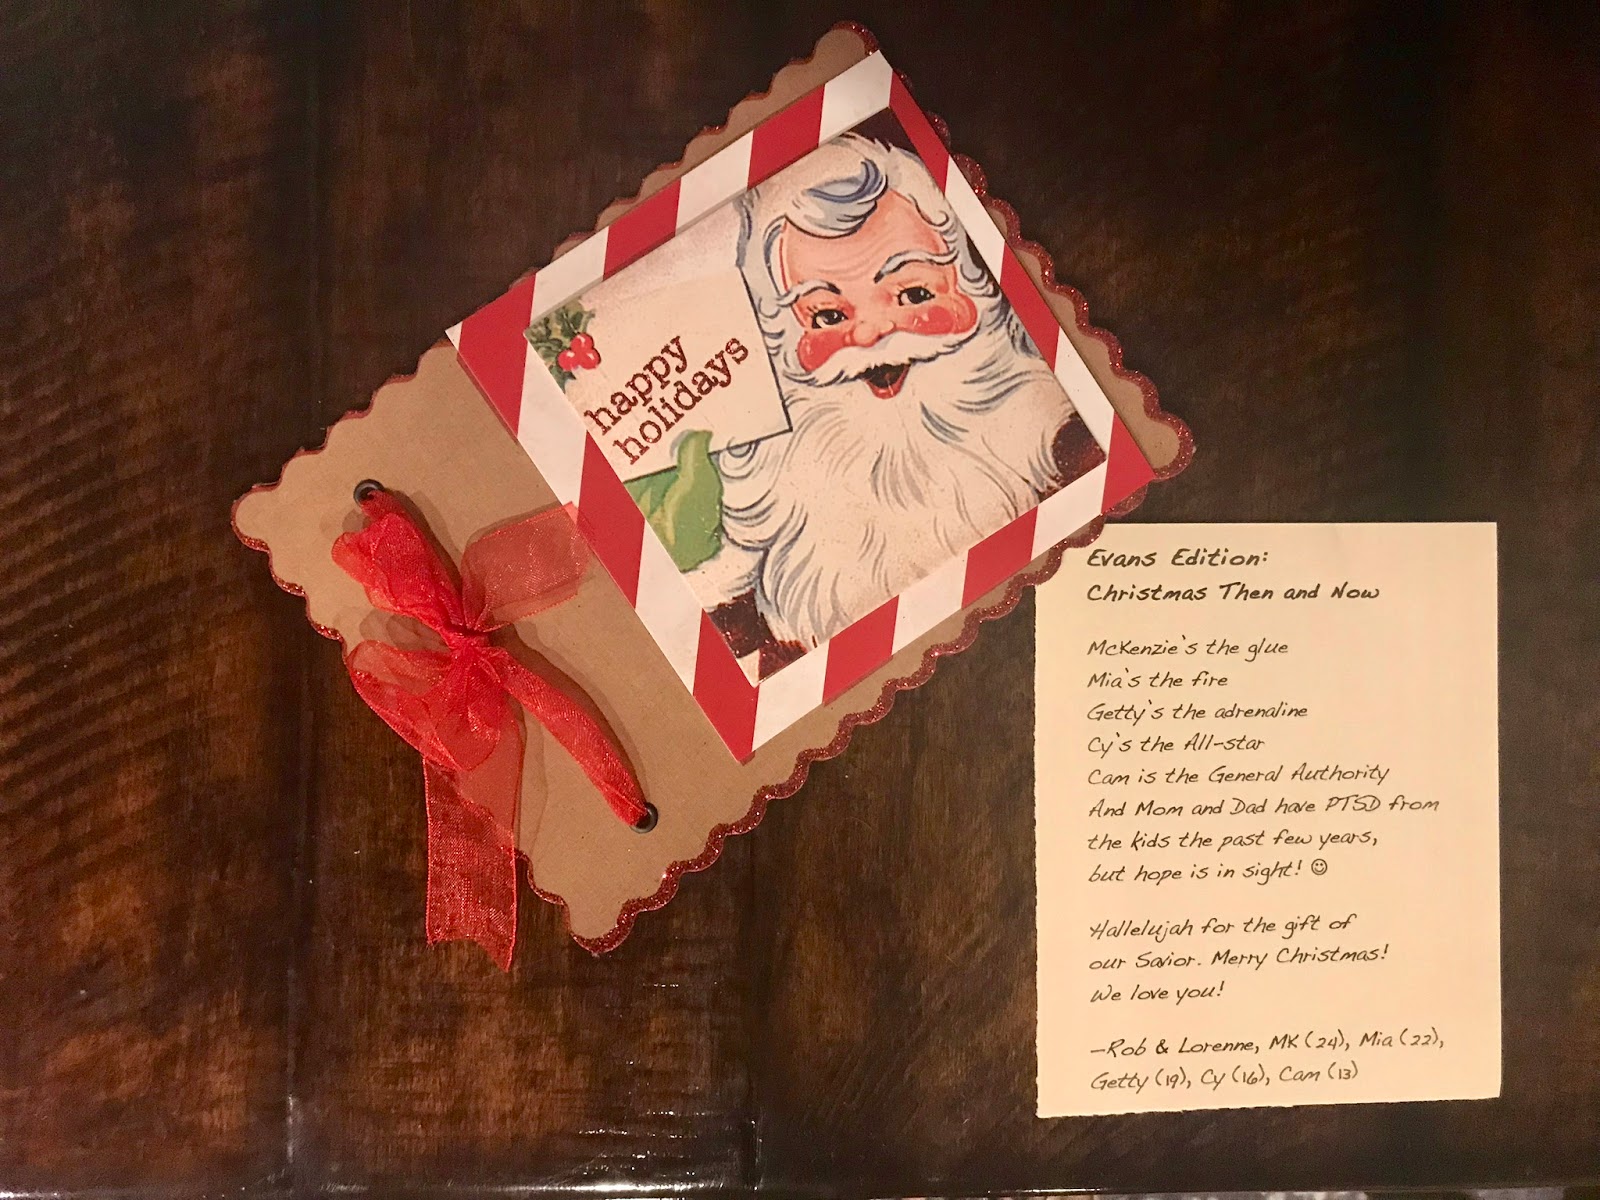 happy
holidays
Evans Edition:
Christmas Then and Now
McKenzie's the glue
Mia's the fire
Getty's the adrenaline
Cy's the All-star
Cam is the General Authority
And Mom and Dad have PTSD from
the kids the past few years,
but hope is in sight! ☺
Hallelujah for the gift of
our Savior. Merry Christmas!
We love you!
—Rob & Lorenne, MK (24), Mia (22),
Getty (19), Cy (16), Cam (13)